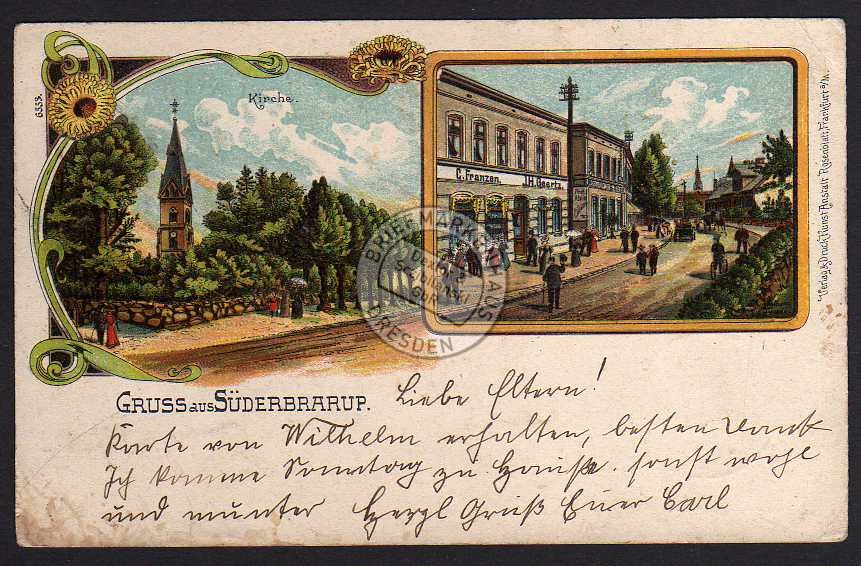 6553.
Kirche.
C. Franzen. J.H. Goertz.
Verlag & Druck Kunst Anstalt Rosenblatt, Frankfurt a/M.
BRIEFMARKENHAUS
DRESDEN
GRUSS aus SÜDERBRARUP. Liebe Eltern!
Karte von Wilhelm erhalten, besten Dank
Ich komme Sonntag zu Hause. sonst wohl
und munter Herzl Gruß Euer Carl